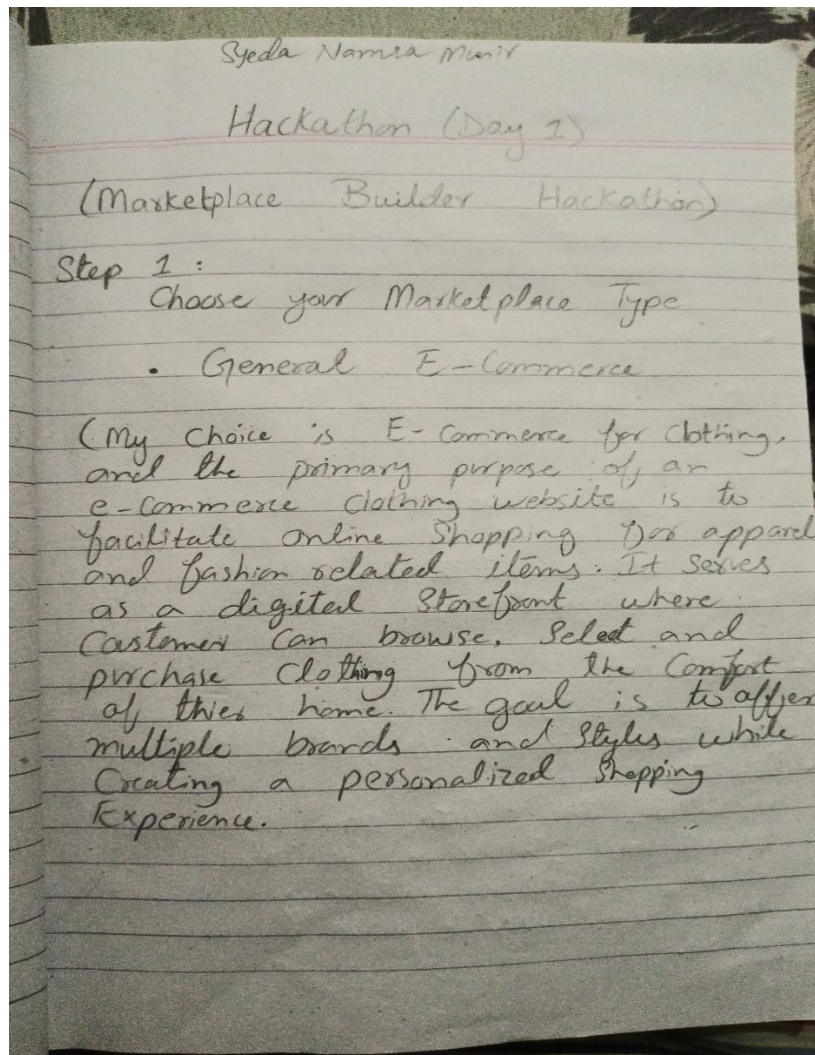 Syeda Namra Munir
Hackathon (Day 1)
(Marketplace Builder Hackathon)
Step 1 :
Choose your Marketplace Type
• General E-Commerce
(My choice is E-Commerce for Clothing,
and the primary purpose of an
e-commerce clothing website is to
facilitate online Shopping for apparel
and fashion related items. It serves
as a digital Storefront where
Customer Can browse, Select and
purchase Clothing from the Comfort
of thier home. The goal is to offer
multiple brands and Styles while
Creating a personalized Shopping
Experience.